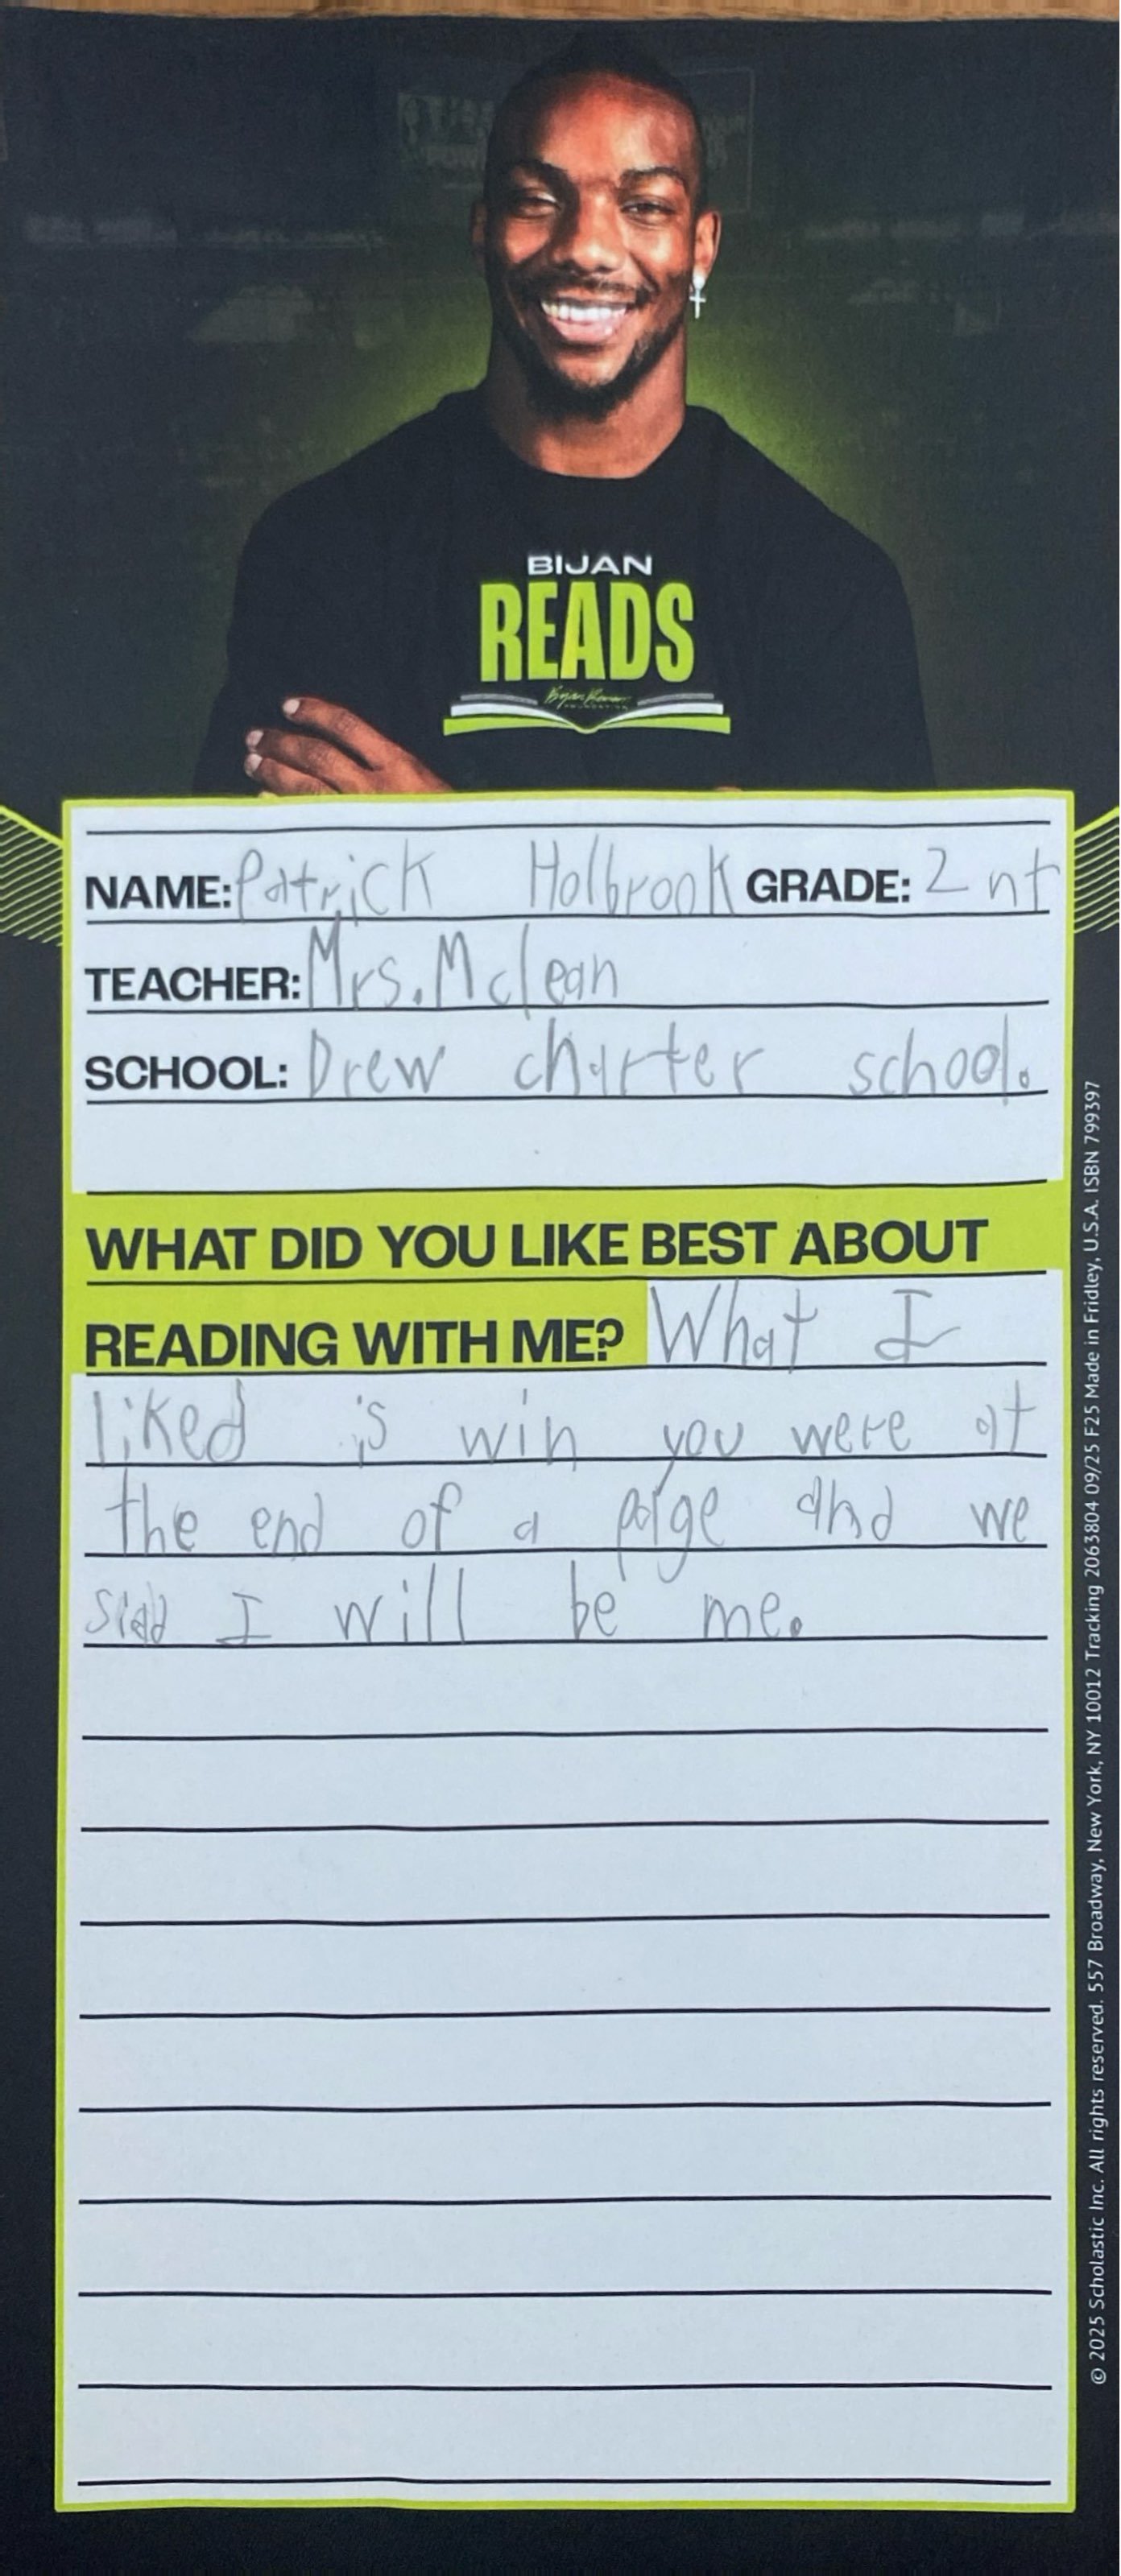 BIJAN
READS
NAME: Patrick Holbrook GRADE: 2 nt
TEACHER: Mrs. Mclean
SCHOOL: Drew charter school.
WHAT DID YOU LIKE BEST ABOUT
READING WITH ME? What I
liked is win you were at
the end of a paige and we
siad I will be me.
© 2025 Scholastic Inc. All rights reserved. 557 Broadway, New York, NY 10012 Tracking 2063804 09/25 F25 Made in Fridley, U.S.A. ISBN 799397